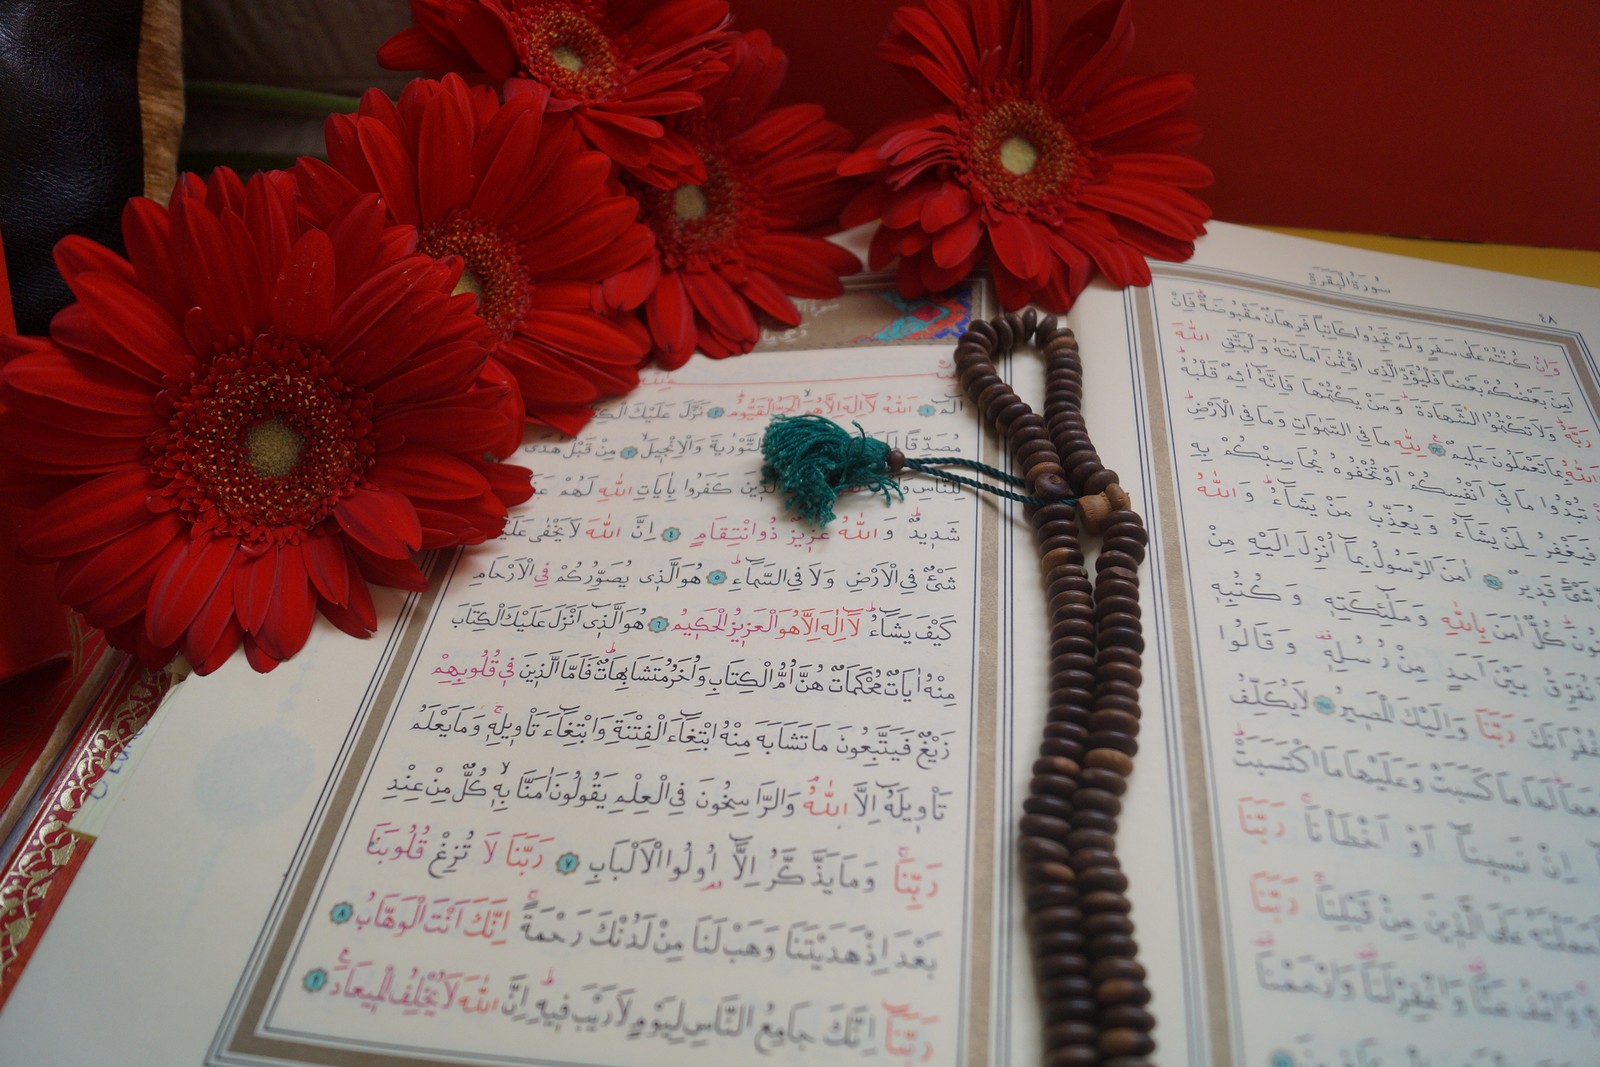 سُورَةُ الْبَقَرَةِ
٤٨
وَاِنْ كُنْتُمْ عَلٰى سَفَرٍ وَلَمْ تَجِدُوا كَاتِبًا فَرِهَانٌ مَقْبُوضَةٌ فَاِنْ
اَمِنَ بَعْضُكُمْ بَعْضًا فَلْيُؤَدِّ الَّذِى اؤْتُمِنَ اَمَانَتَهُ وَلْيَتَّقِ اللّٰهَ
رَبَّهُ وَلَا تَكْتُمُوا الشَّهَادَةَ وَمَنْ يَكْتُمْهَا فَاِنَّهُٓ اٰثِمٌ قَلْبُهُ
وَاللّٰهُ بِمَا تَعْمَلُونَ عَلِيمٌ لِلّٰهِ مَا فِى السَّمٰوَاتِ وَمَا فِى الْاَرْضِ
تُبْدُوا مَا فِٓى اَنْفُسِكُمْ اَوْ تُخْفُوهُ يُحَاسِبْكُمْ بِهِ
فَيَغْفِرُ لِمَنْ يَشَٓاءُ وَيُعَذِّبُ مَنْ يَشَٓاءُ وَاللّٰهُ
شَىْءٍ قَدِيرٌ اٰمَنَ الرَّسُولُ بِمَٓا اُنْزِلَ اِلَيْهِ مِنْ
كُلٌّ اٰمَنَ بِاللّٰهِ وَمَلٰٓئِكَتِهِ وَكُتُبِهِ
نُفَرِّقُ بَيْنَ اَحَدٍ مِنْ رُسُلِهِ وَقَالُوا
غُفْرَانَكَ رَبَّنَا وَاِلَيْكَ الْمَصِيرُ لَا يُكَلِّفُ
لَهَا مَا كَسَبَتْ وَعَلَيْهَا مَا اكْتَسَبَتْ
اِنْ نَسِينَٓا اَوْ اَخْطَأْنَا رَبَّنَا
حَمَلْتَهُ عَلَى الَّذِينَ مِنْ قَبْلِنَا رَبَّنَا
وَاعْفُ عَنَّا وَاغْفِرْ لَنَا وَارْحَمْنَا
الٓمٓ ١ اَللّٰهُ لَٓا اِلٰهَ اِلَّا هُوَ الْحَىُّ الْقَيُّومُ ٢ نَزَّلَ عَلَيْكَ
مُصَدِّقًا التَّوْرٰيةَ وَالْاِنْجِيلَ ٣ مِنْ قَبْلُ هُدًى
لِلنَّاسِ الَّذِينَ كَفَرُوا بِاٰيَاتِ اللّٰهِ لَهُمْ
شَدِيدٌ وَاللّٰهُ عَزِيزٌ ذُو انْتِقَامٍ ٤ اِنَّ اللّٰهَ لَا يَخْفٰى
شَىْءٌ فِى الْاَرْضِ وَلَا فِى السَّمَٓاءِ ٥ هُوَ الَّذِى يُصَوِّرُكُمْ فِى الْاَرْحَامِ
كَيْفَ يَشَٓاءُ لَٓا اِلٰهَ اِلَّا هُوَ الْعَزِيزُ الْحَكِيمُ ٦ هُوَ الَّذِٓى اَنْزَلَ عَلَيْكَ الْكِتَابَ
مِنْهُ اٰيَاتٌ مُحْكَمَاتٌ هُنَّ اُمُّ الْكِتَابِ وَاُخَرُ مُتَشَابِهَاتٌ فَاَمَّا الَّذِينَ فِى قُلُوبِهِمْ
زَيْغٌ فَيَتَّبِعُونَ مَا تَشَابَهَ مِنْهُ ابْتِغَٓاءَ الْفِتْنَةِ وَابْتِغَٓاءَ تَأْوِيلِهِ وَمَا يَعْلَمُ
تَأْوِيلَهُٓ اِلَّا اللّٰهُ وَالرَّاسِخُونَ فِى الْعِلْمِ يَقُولُونَ اٰمَنَّا بِهِ كُلٌّ مِنْ عِنْدِ
رَبِّنَا وَمَا يَذَّكَّرُ اِلَّٓا اُولُوا الْاَلْبَابِ ٧ رَبَّنَا لَا تُزِغْ قُلُوبَنَا
بَعْدَ اِذْ هَدَيْتَنَا وَهَبْ لَنَا مِنْ لَدُنْكَ رَحْمَةً اِنَّكَ اَنْتَ الْوَهَّابُ ٨
رَبَّنَٓا اِنَّكَ جَامِعُ النَّاسِ لِيَوْمٍ لَا رَيْبَ فِيهِ اِنَّ اللّٰهَ لَا يُخْلِفُ الْمِيعَادَ ٩